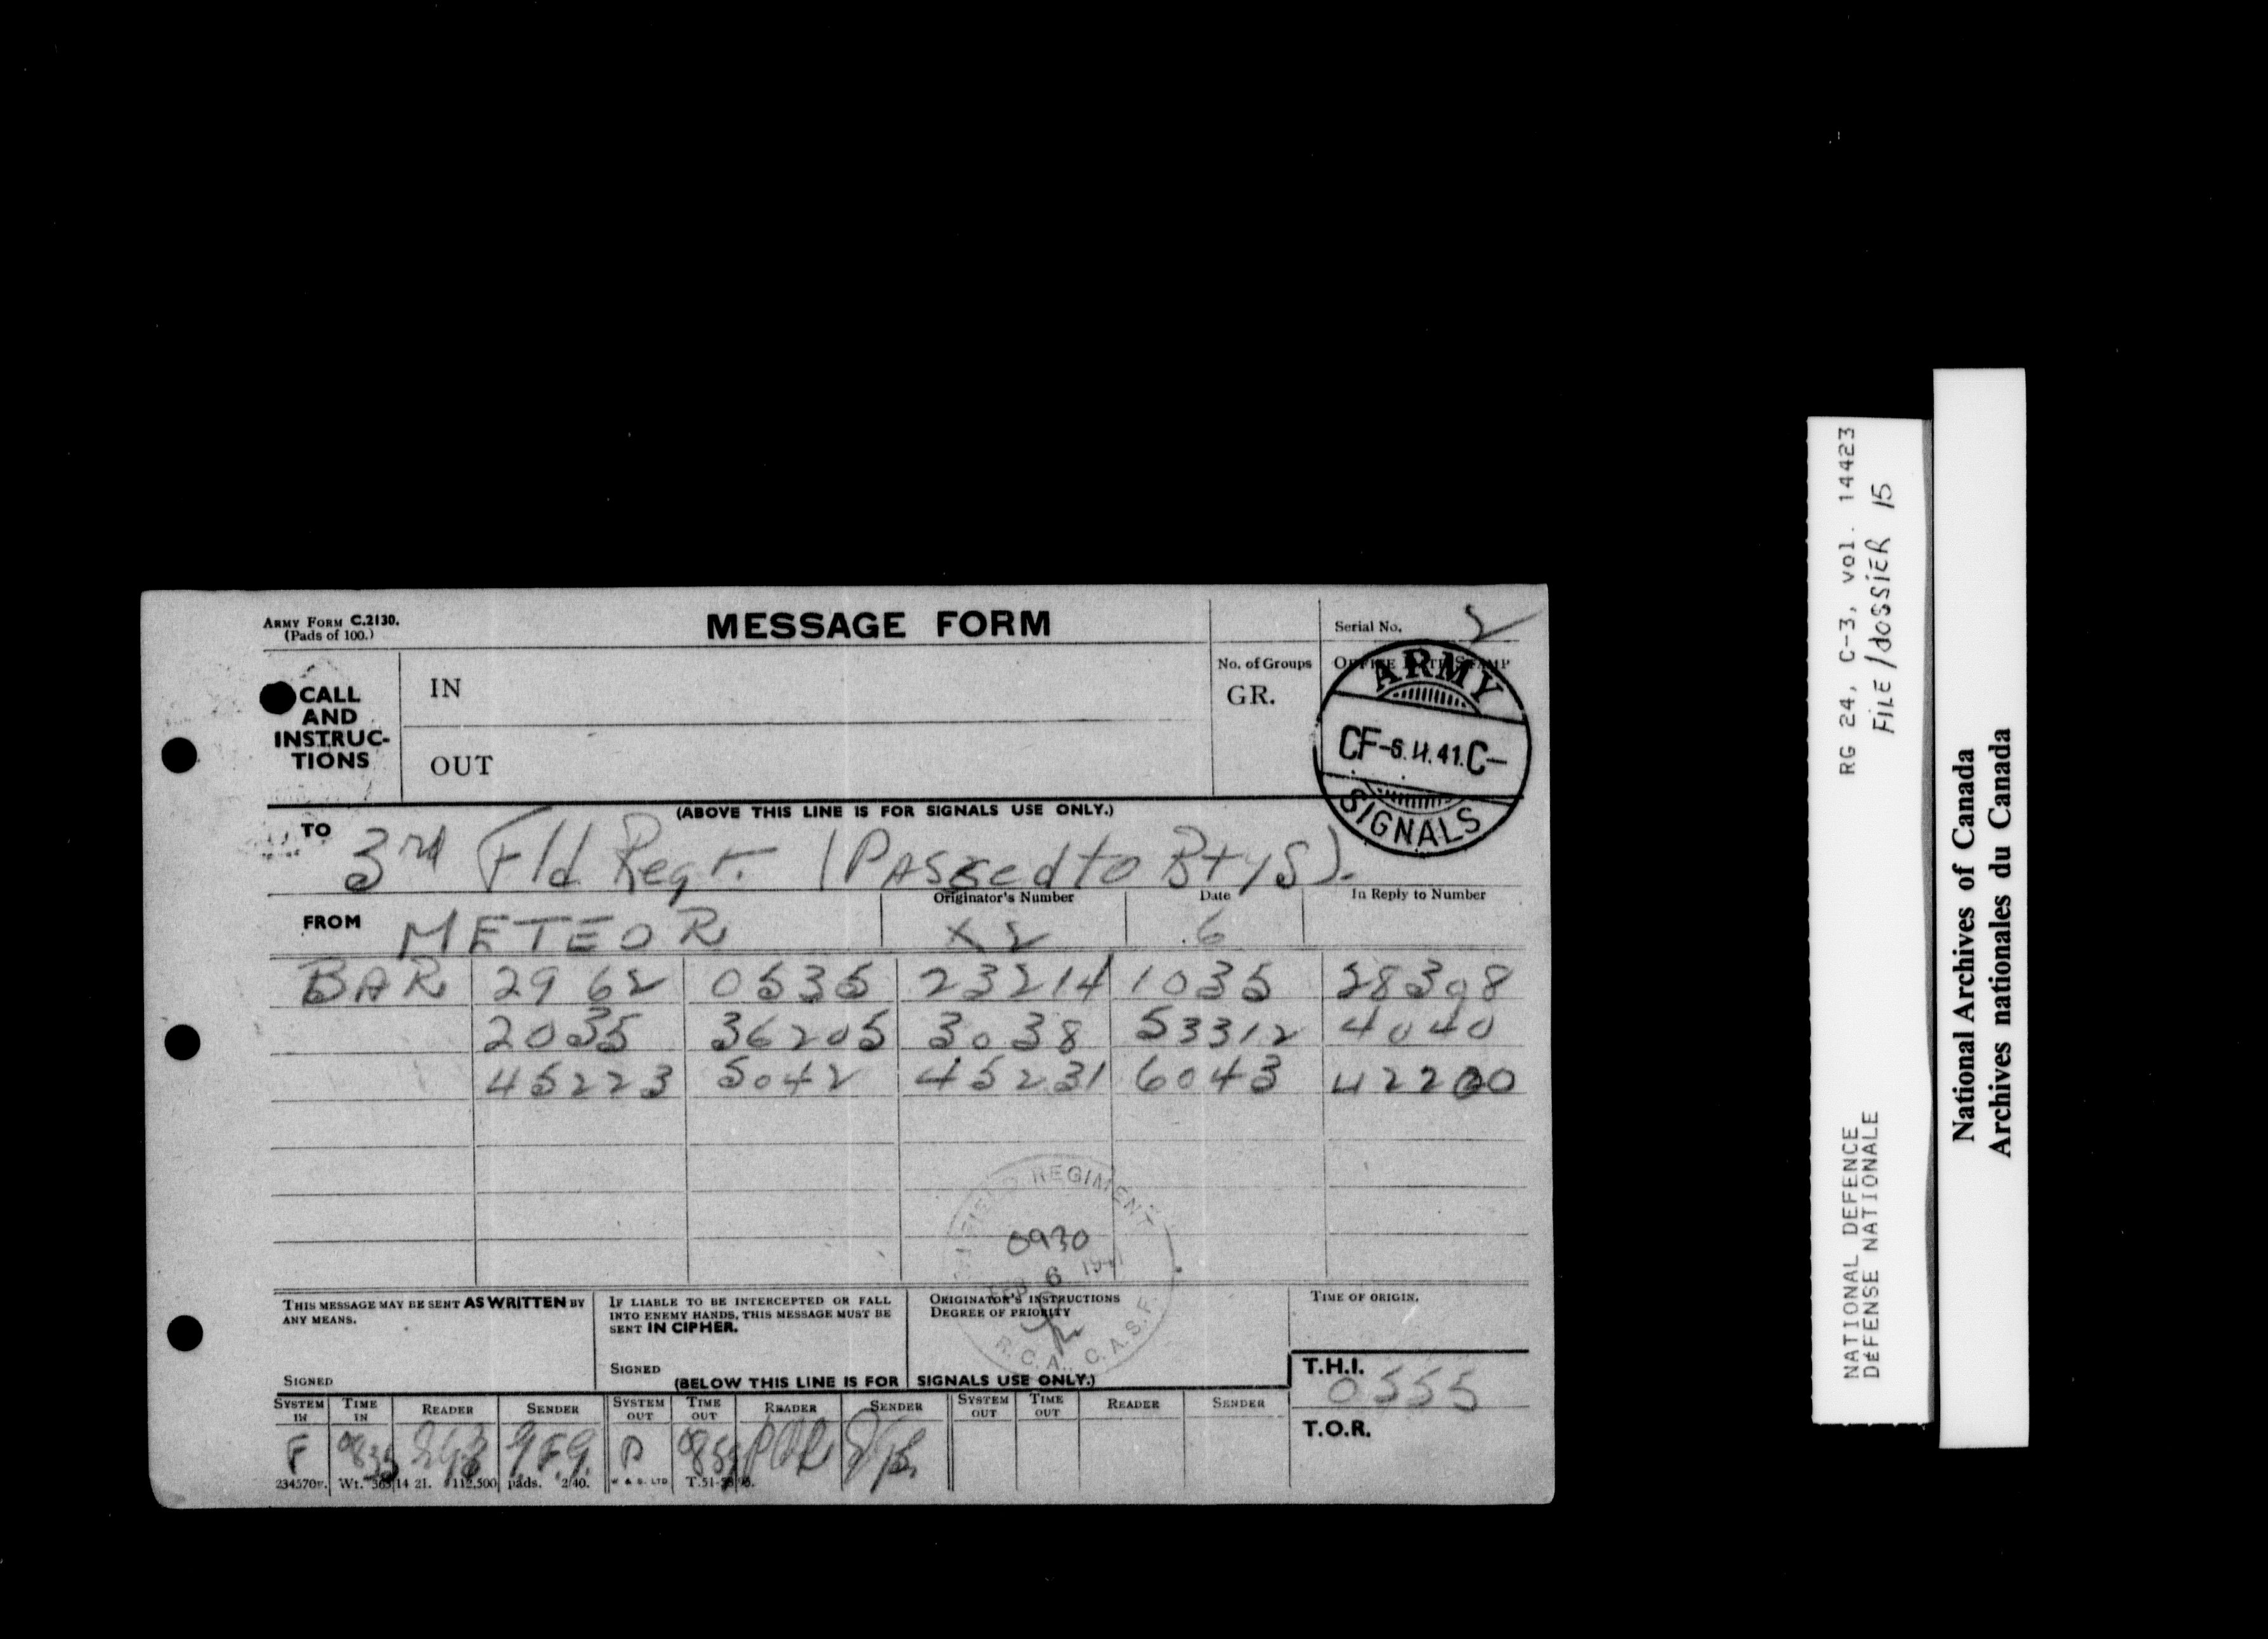 ARMY FORM C.2130.
(Pads of 100.)
MESSAGE FORM
Serial No. 2
CALL AND INSTRUC-TIONS
IN
OUT
No. of Groups
GR.
OFFICE DATE STAMP
ARMY
CF-6.II.41.C-
SIGNALS
(ABOVE THIS LINE IS FOR SIGNALS USE ONLY.)
TO 3rd Fld Regt. (PASSed to BtyS).
FROM METEOR
Originator's Number X2
Date 6
In Reply to Number
BAR 2962 0535 23214 1035 28308
2035 36205 3038 53312 4040
45223 5042 45231 6043 42200
FIELD REGIMENT
0930
FEB 6 1941
R.C.A., C.A.S.F.
THIS MESSAGE MAY BE SENT AS WRITTEN BY
ANY MEANS.
SIGNED
IF LIABLE TO BE INTERCEPTED OR FALL
INTO ENEMY HANDS, THIS MESSAGE MUST BE
SENT IN CIPHER.
SIGNED
ORIGINATOR'S INSTRUCTIONS
DEGREE OF PRIORITY
TIME OF ORIGIN.
T.H.I.
0555
T.O.R.
(BELOW THIS LINE IS FOR SIGNALS USE ONLY.)
SYSTEM IN TIME IN READER SENDER SYSTEM OUT TIME OUT READER SENDER SYSTEM OUT TIME OUT READER SENDER
F 0835 G.F.G. D
234570F. Wt. 14 21. 112,500 pads. 2/40. W & S. LTD
RG 24, C-3, vol. 14423
FILE/dOSSiER 15
NATIONAL DEFENCE
DÉFENSE NATIONALE
National Archives of Canada
Archives nationales du Canada